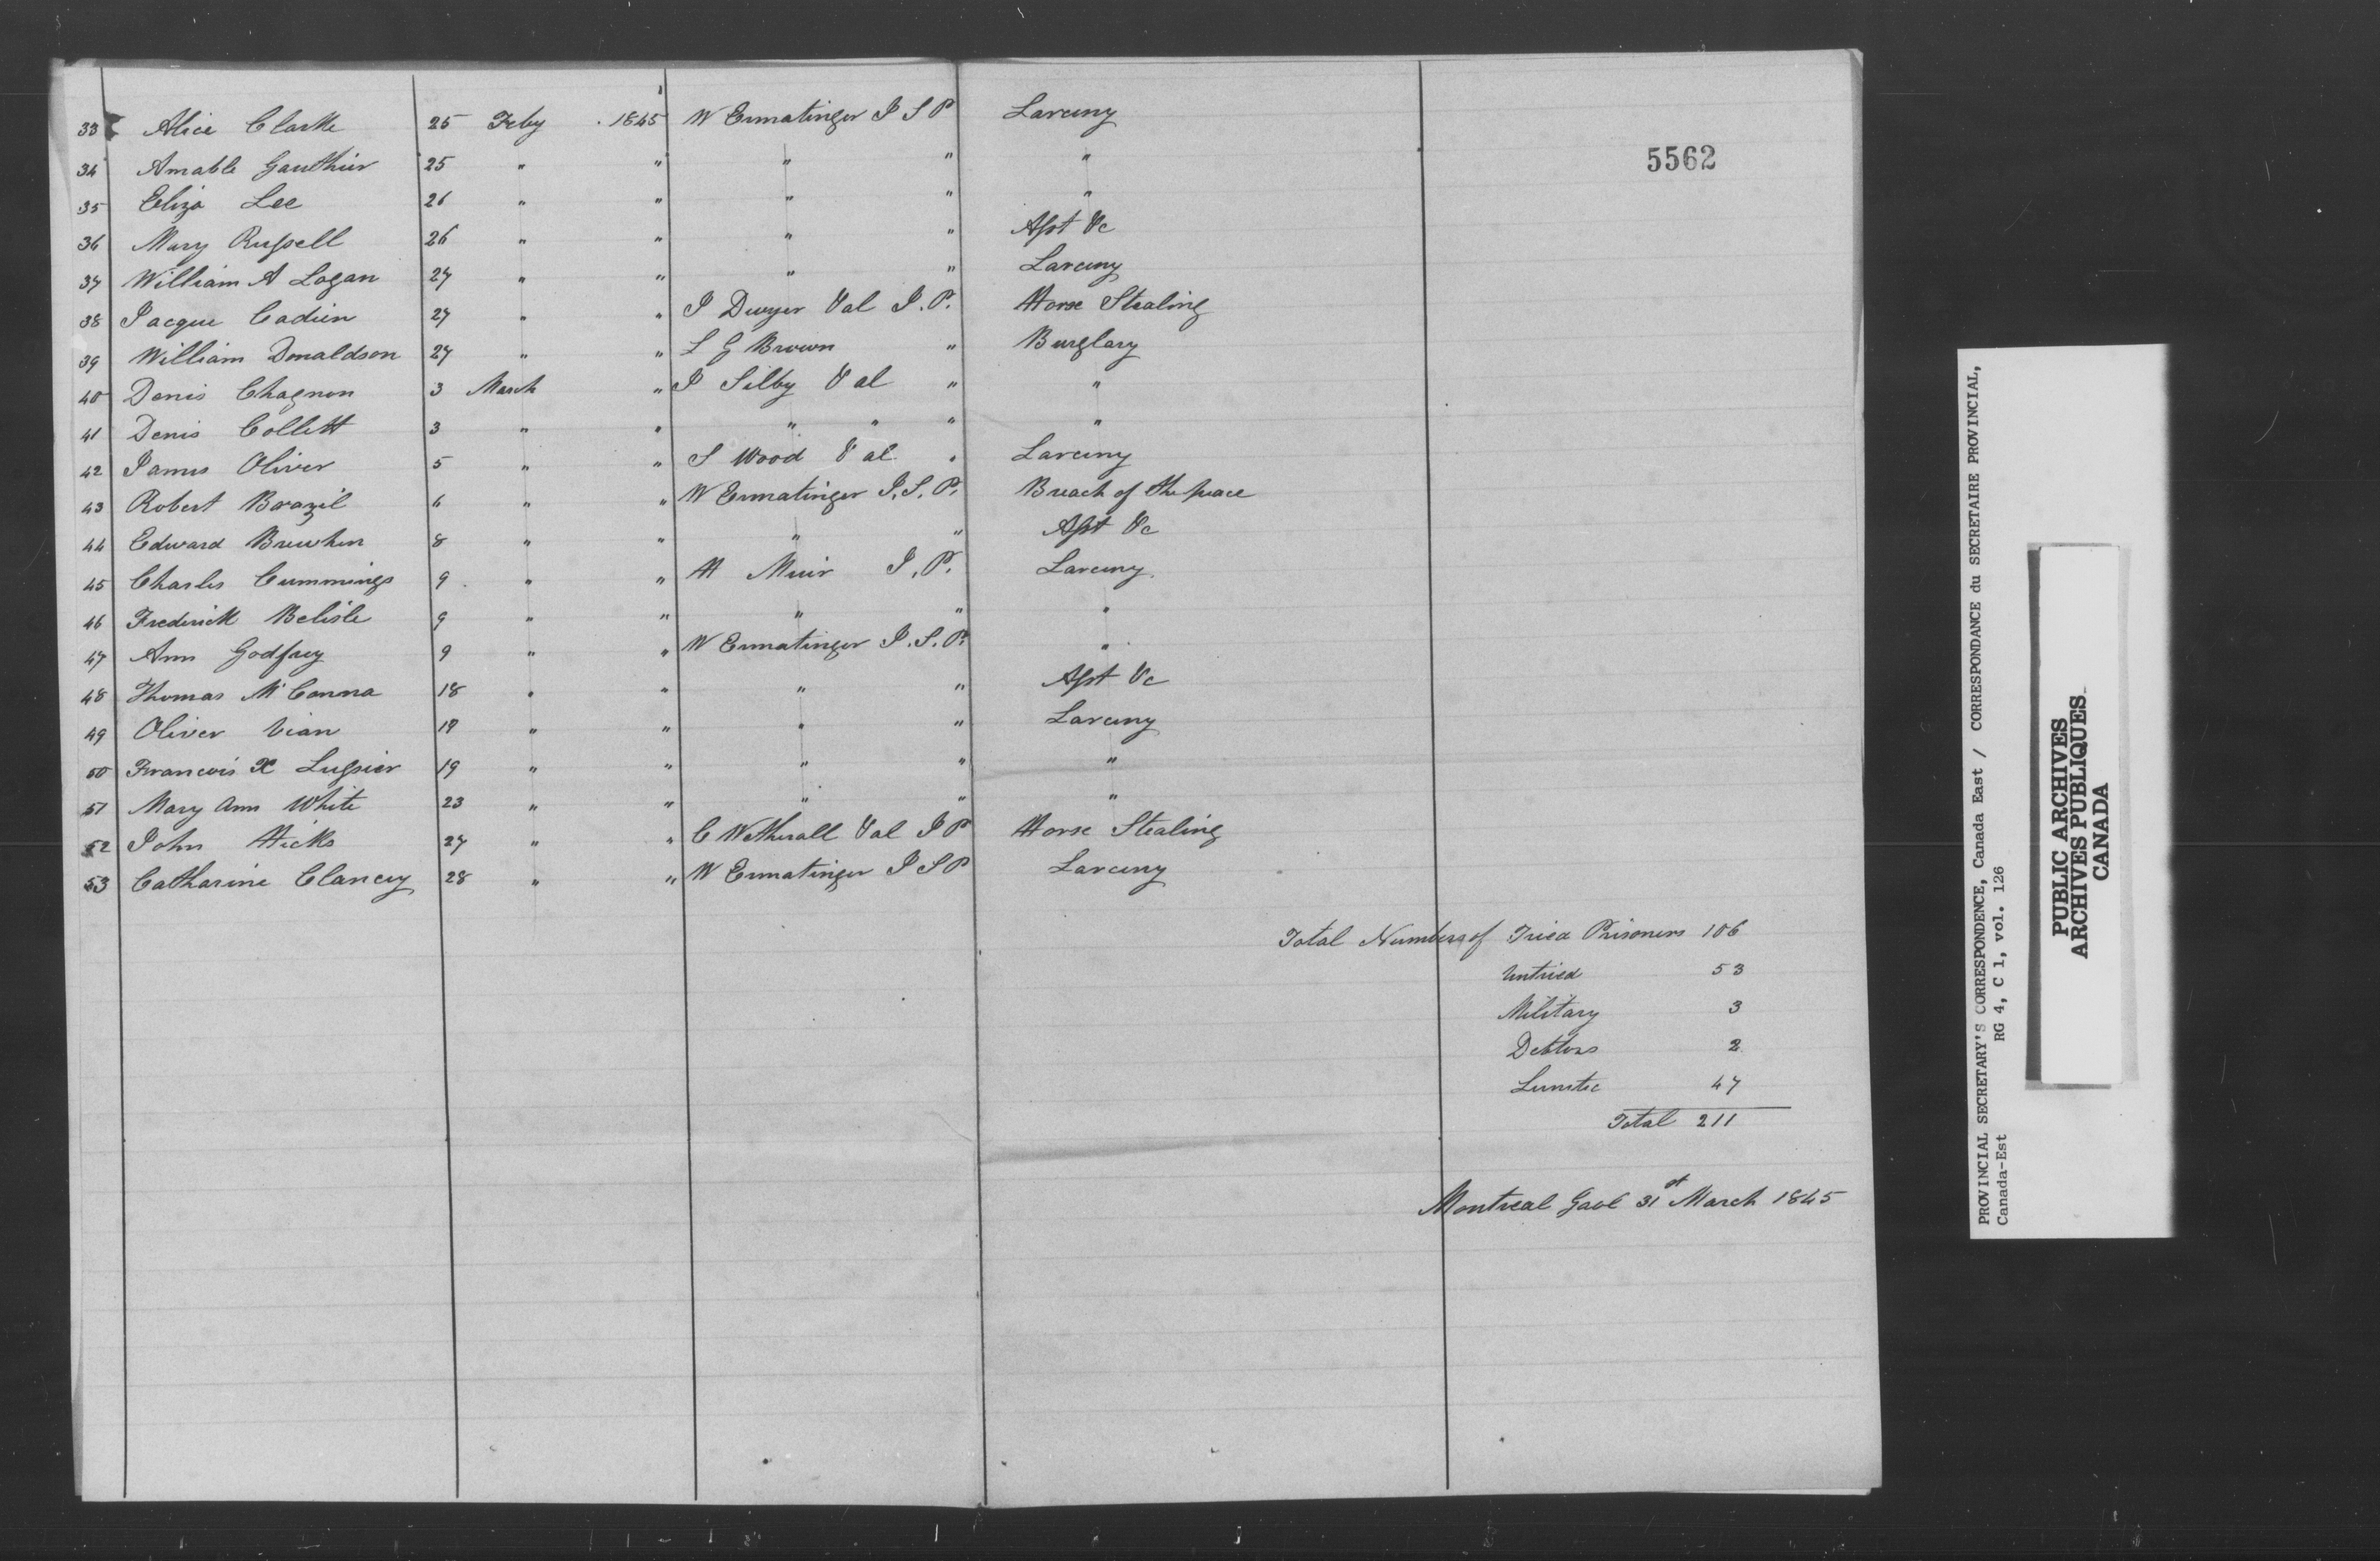 33 Alice Clarke 25 Feby 1845 W Ermatinger I S P Larceny
5562
34 Amable Gauthier 25 " " " " "
35 Eliza Lee 26 " " " " "
36 Mary Russell 26 " " " " Asst &c
37 William A Logan 27 " " " " Larceny
38 Jacque Cadien 27 " " J Dwyer & al J.P. Horse Stealing
39 William Donaldson 27 " " L G Brown " Burglary
40 Denis Chagnon 3 March " J Silby & al " "
41 Denis Collett 3 " " " " " "
42 James Oliver 5 " " S Wood & al " Larceny
43 Robert Brazil 6 " " W Ermatinger I.S.P. Breach of the peace
44 Edward 8 " " " " Asst &c
45 Charles Cummings 9 " " H Muir J.P. Larceny
46 Frederick Belisle 9 " " " " "
47 Ann Godfrey 9 " " W Ermatinger I.S.P. "
48 Thomas McConna 18 " " " " Asst &c
49 Oliver Vian 19 " " " " Larceny
50 Francois X Lussier 19 " " " " "
51 Mary Ann White 23 " " " " "
52 John Hicks 27 " " C Wetherall & al J P Horse Stealing
53 Catharine Clancey 28 " " W Ermatinger I S P Larceny
Total Numbers of Tried Prisoners 106
Untried 53
Military 3
Debtors 2
Lunatic 47
Total 211
Montreal Gaol 31st March 1845
PROVINCIAL SECRETARY'S CORRESPONDENCE, Canada East / CORRESPONDANCE du SECRETAIRE PROVINCIAL,
Canada-Est RG 4, C 1, vol. 126
PUBLIC ARCHIVES
ARCHIVES PUBLIQUES
CANADA